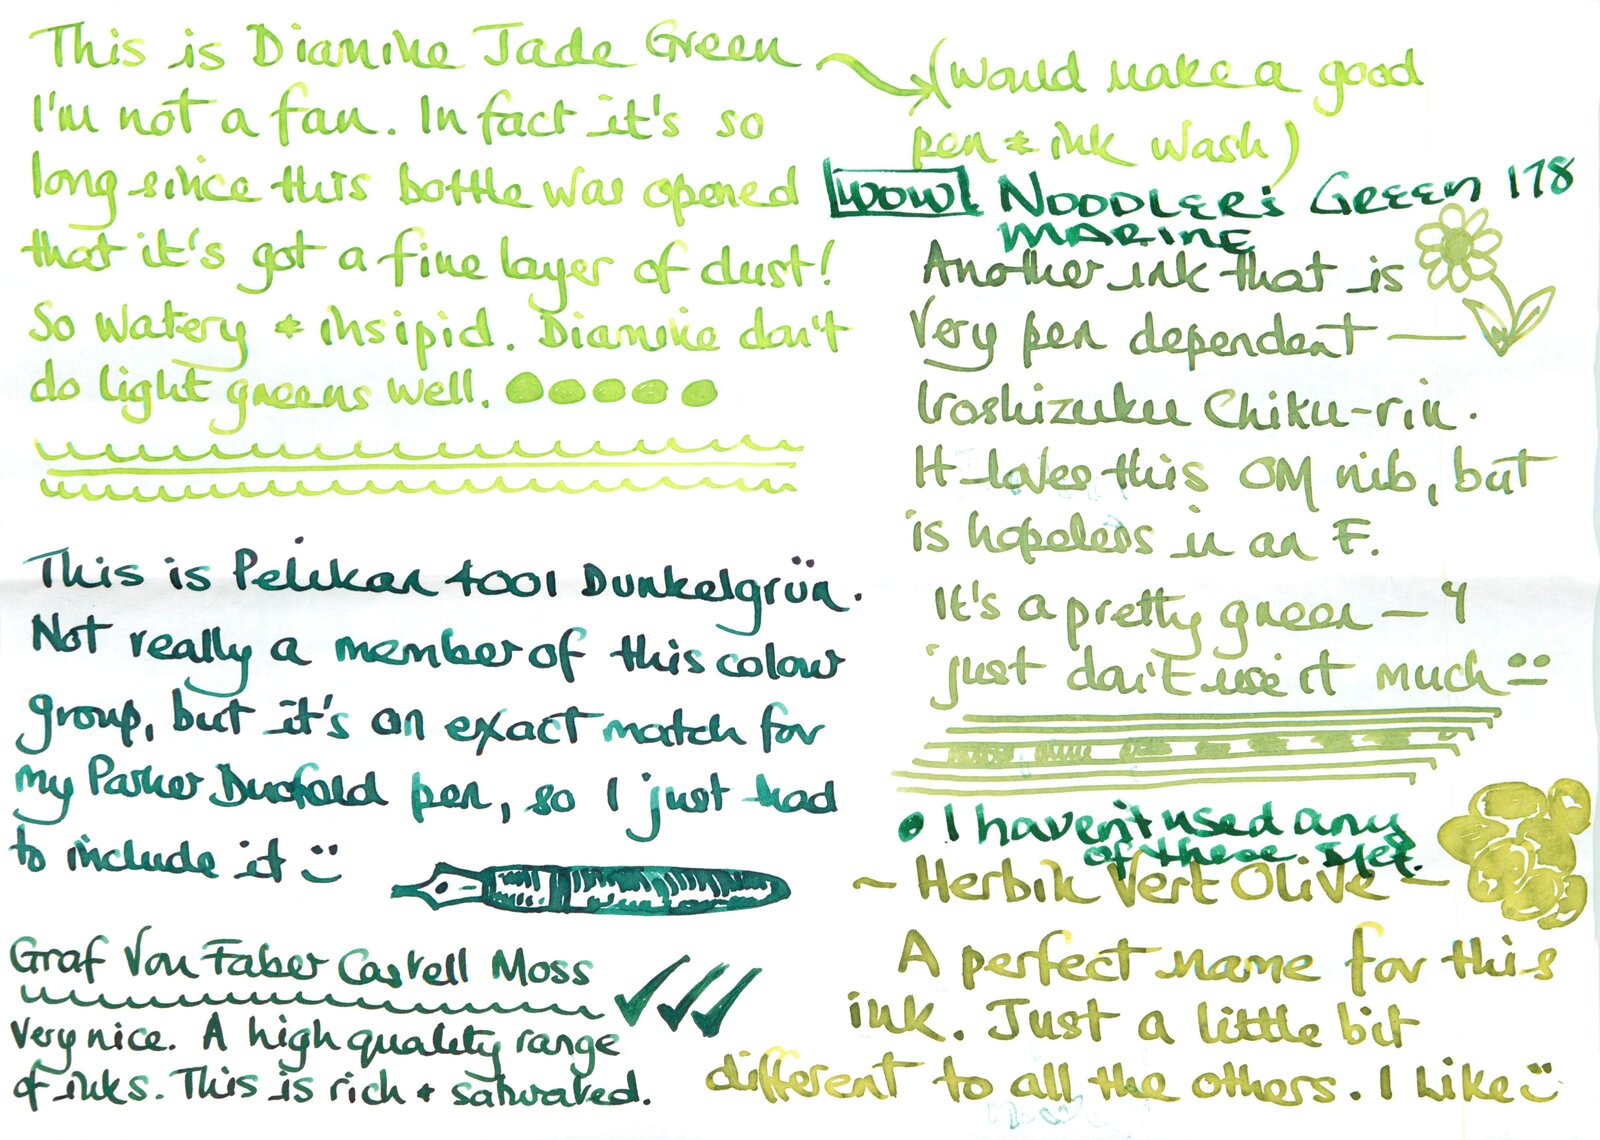 This is Diamine Jade Green
I'm not a fan. In fact it's so
long since this bottle was opened
that it's got a fine layer of dust!
So watery & insipid. Diamine don't
do light greens well.
(would make a good
pen & ink wash)
This is Pelikan 4001 Dunkelgrün.
Not really a member of this colour
group, but it's an exact match for
my Parker Duofold pen, so I just had
to include it
Graf Von Faber Castell Moss
Very nice. A high quality range
of inks. This is rich & saturated.
WOW! NOODLER's GREEN 178
MARINE
Another ink that is
very pen dependent —
Iroshizuku Chiku-rin.
It loves this OM nib, but
is hopeless in an F.
It's a pretty green – I
just don't use it much
• I haven't used any
of these yet.
~ Herbin Vert Olive ~
A perfect name for this
ink. Just a little bit
different to all the others. I like